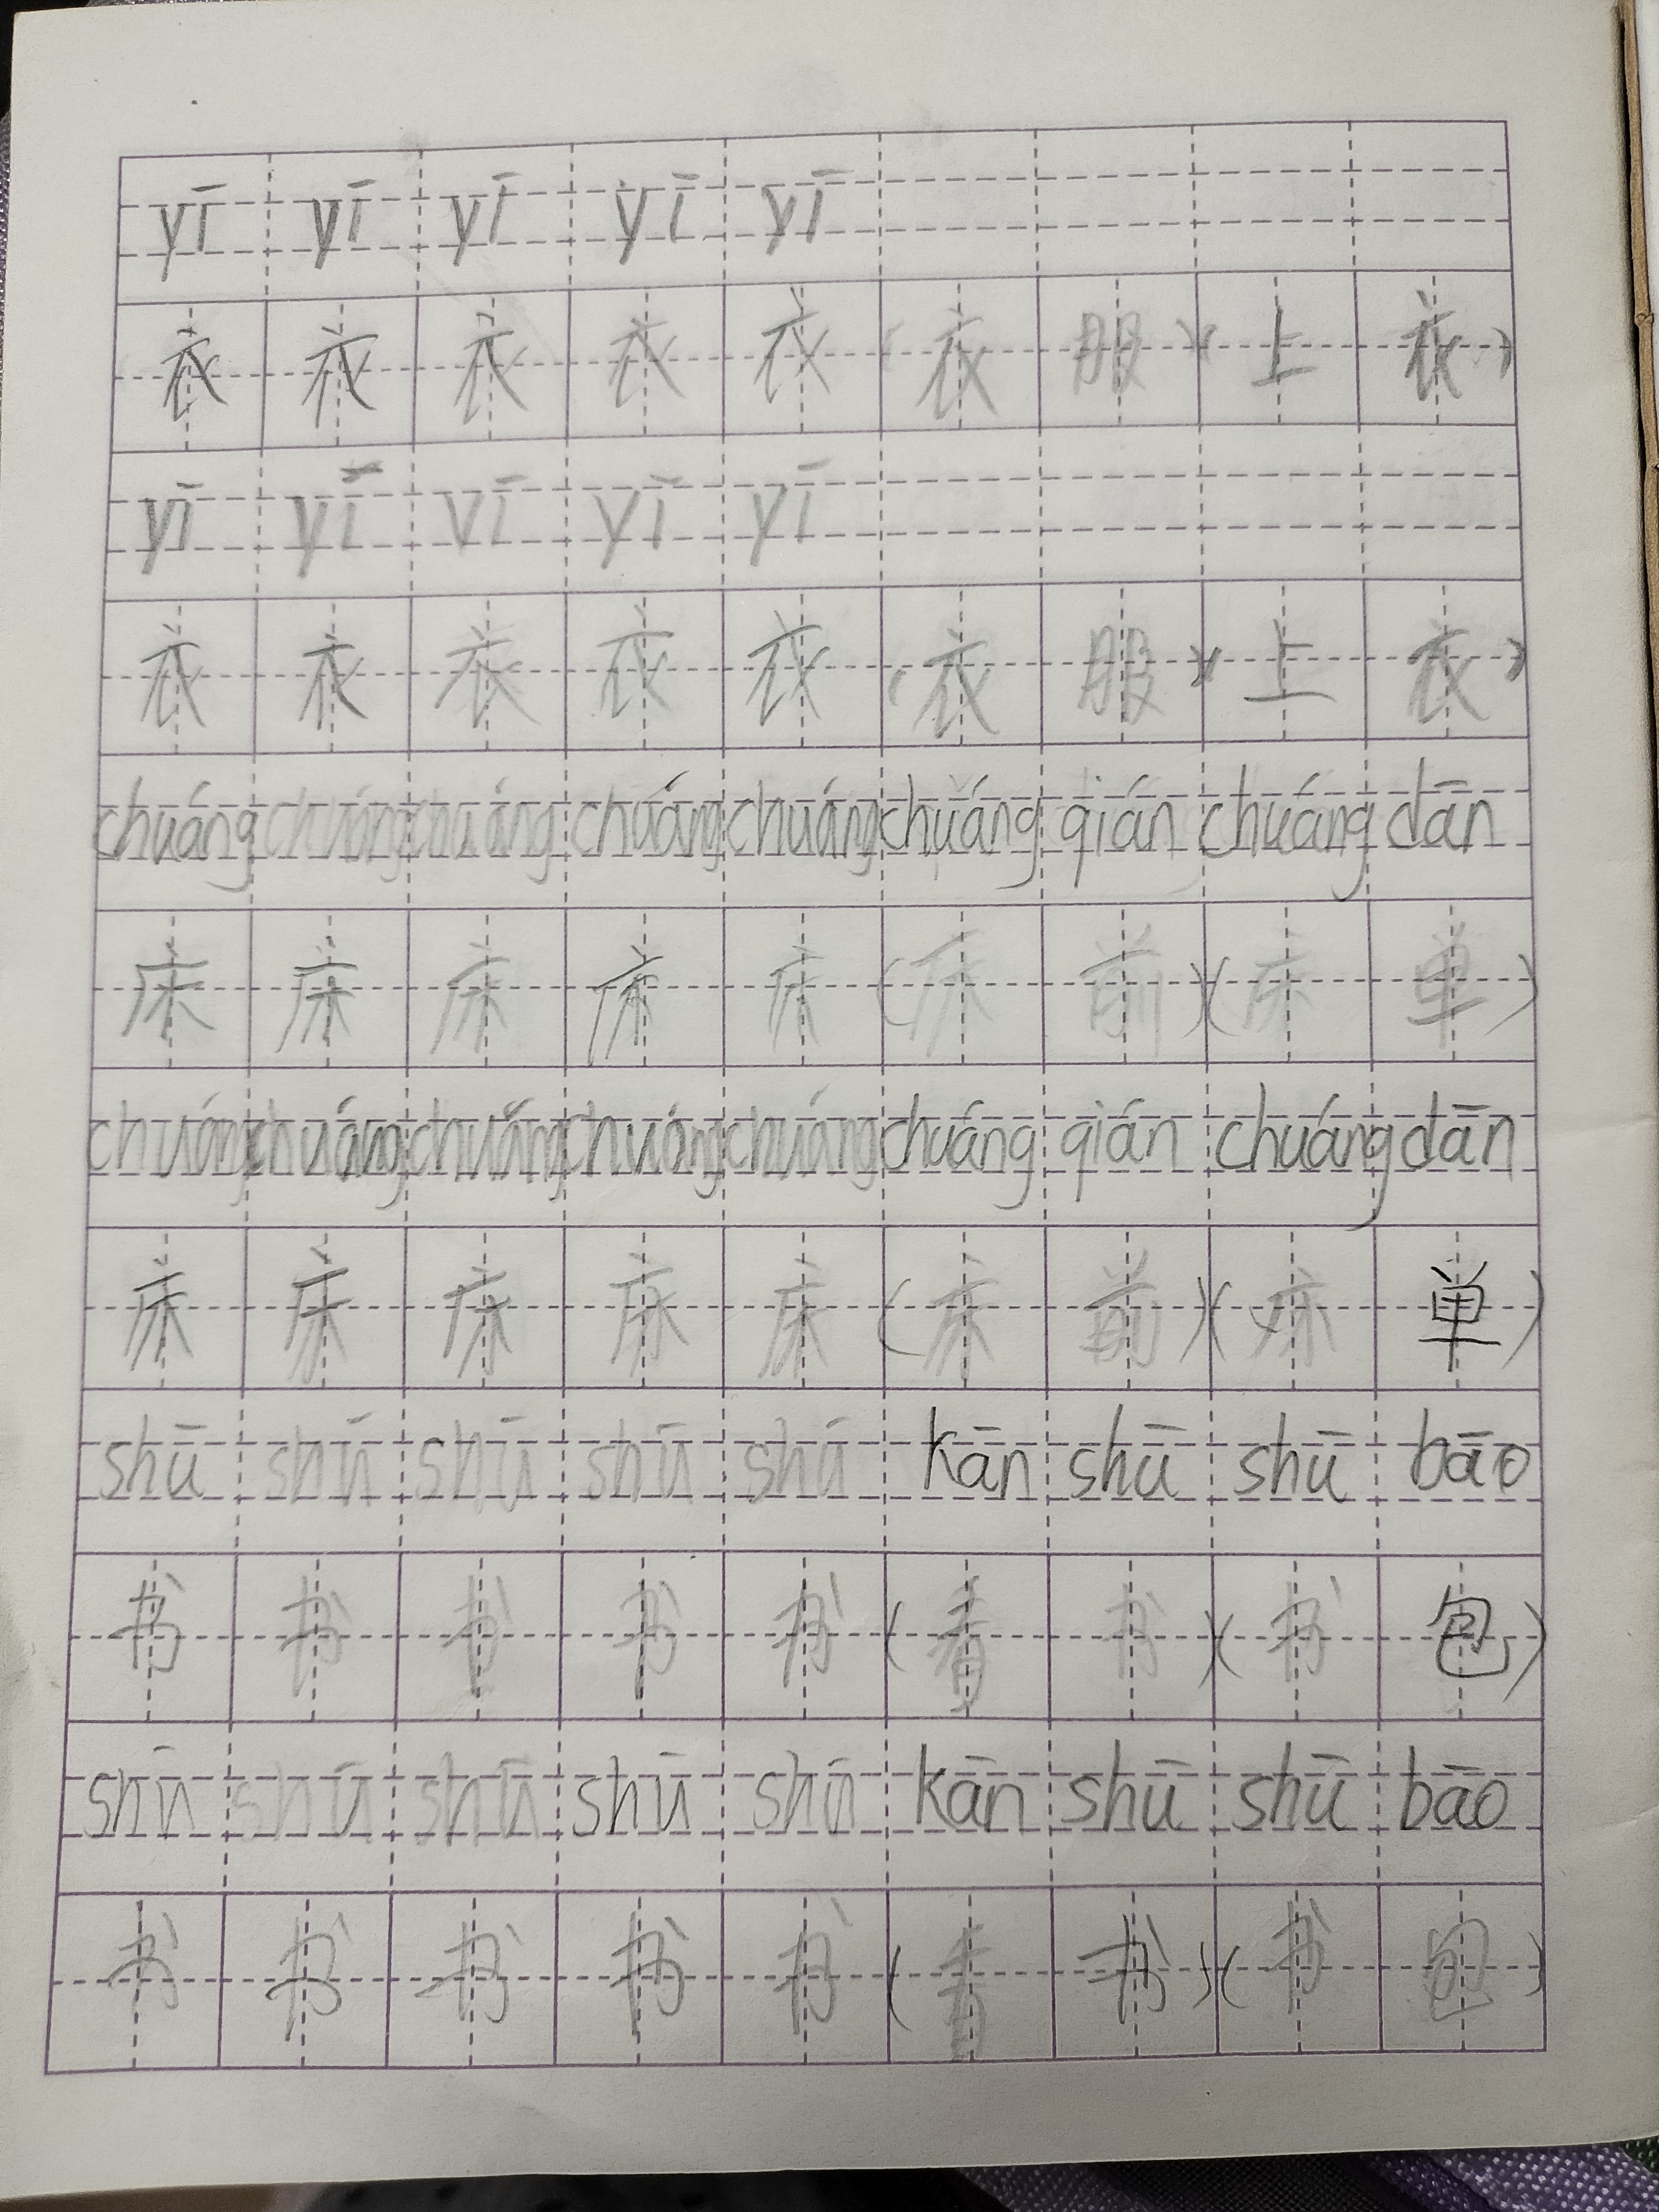 yī yī yī yī yī
衣 衣 衣 衣 衣 (衣 服)(上 衣)
yī yī yī yī yī
衣 衣 衣 衣 衣 (衣 服)(上 衣)
chuáng chuáng chuáng chuáng chuáng chuáng qián chuáng dān
床 床 床 床 床 (床 前)(床 单)
chuáng chuáng chuáng chuáng chuáng chuáng qián chuáng dān
床 床 床 床 床 (床 前)(床 单)
shū shū shū shū shū kān shū shū bāo
书 书 书 书 书 (看 书)(书 包)
shū shū shū shū shū kān shū shū bāo
书 书 书 书 书 (看 书)(书 包)